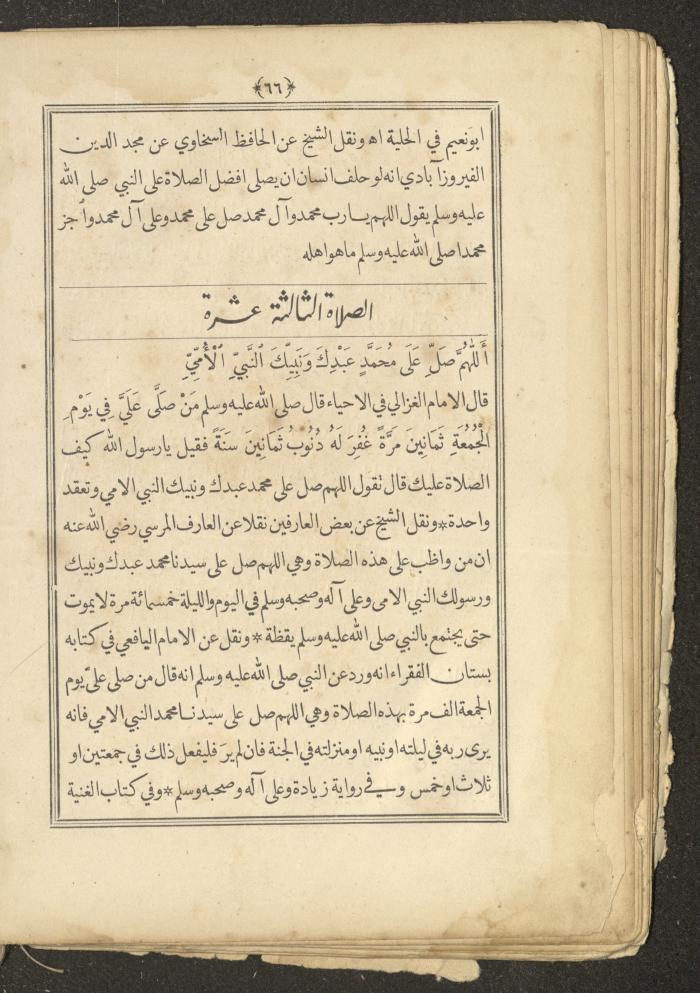 ﴿٦٦﴾
ابونعيم في الحلية اه ونقل الشيخ عن الحافظ السخاوي عن مجد الدين
الفيروزآبادي انه لو حلف انسان ان يصلى افضل الصلاة على النبي صلى الله
عليه وسلم يقول اللهم يا رب محمد وآل محمد صل على محمد وعلى آل محمد وأجز
محمدا صلى الله عليه وسلم ما هو اهله
الصلاة الثالثة عشرة
أَللّٰهُمَّ صَلِّ عَلَى مُحَمَّدٍ عَبْدِكَ وَنَبِيِّكَ ٱلنَّبِيِّ ٱلْأُمِّيِّ
قال الامام الغزالي في الاحياء قال صلى الله عليه وسلم مَنْ صَلَّى عَلَيَّ فِي يَوْمِ
الْجُمُعَةِ ثَمَانِينَ مَرَّةً غُفِرَ لَهُ ذُنُوبُ ثَمَانِينَ سَنَةً فقيل يا رسول الله كيف
الصلاة عليك قال تقول اللهم صل على محمد عبدك ونبيك النبي الامي وتعقد
واحدة * ونقل الشيخ عن بعض العارفين نقلا عن العارف المرسي رضي الله عنه
ان من واظب على هذه الصلاة وهي اللهم صل على سيدنا محمد عبدك ونبيك
ورسولك النبي الامى وعلى آله وصحبه وسلم في اليوم والليلة خمسمائة مرة لا يموت
حتى يجتمع بالنبي صلى الله عليه وسلم يقظة * ونقل عن الامام اليافعي في كتابه
بستان الفقراء انه ورد عن النبي صلى الله عليه وسلم انه قال من صلى علىّ يوم
الجمعة الف مرة بهذه الصلاة وهي اللهم صل على سيدنا محمد النبي الامي فانه
يرى ربه في ليلته او نبيه او منزلته في الجنة فان لم يرَ فليفعل ذلك في جمعتين او
ثلاث او خمس وفي رواية زيادة وعلى آله وصحبه وسلم * وفي كتاب الغنية